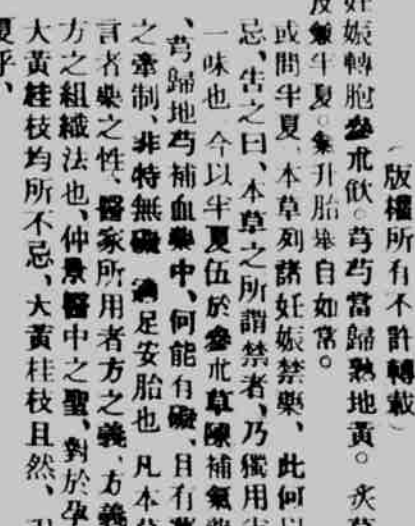 （版權所有不許轉載）
妊娠轉胞參朮飲。芎芍當歸熟地黃。炙草
及兼半夏。氣升胎舉自如常。
或問半夏、本草列諸妊娠禁藥、此何以
忌、告之曰、本草之所謂禁者、乃獨用
一味也、今以半夏伍於參朮草陳補氣
、芎歸地芍補血藥中、何能有礙、且有
之牽制、非特無礙、適足安胎也、凡本草
言者藥之性、醫家所用者方之義、方義
方之組織法也、仲景醫中之聖、對於孕
大黃桂枝均所不忌、大黃桂枝且然、
夏乎、